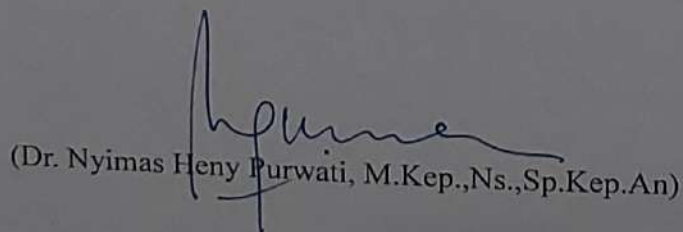 (Dr. Nyimas Heny Purwati, M.Kep.,Ns.,Sp.Kep.An)